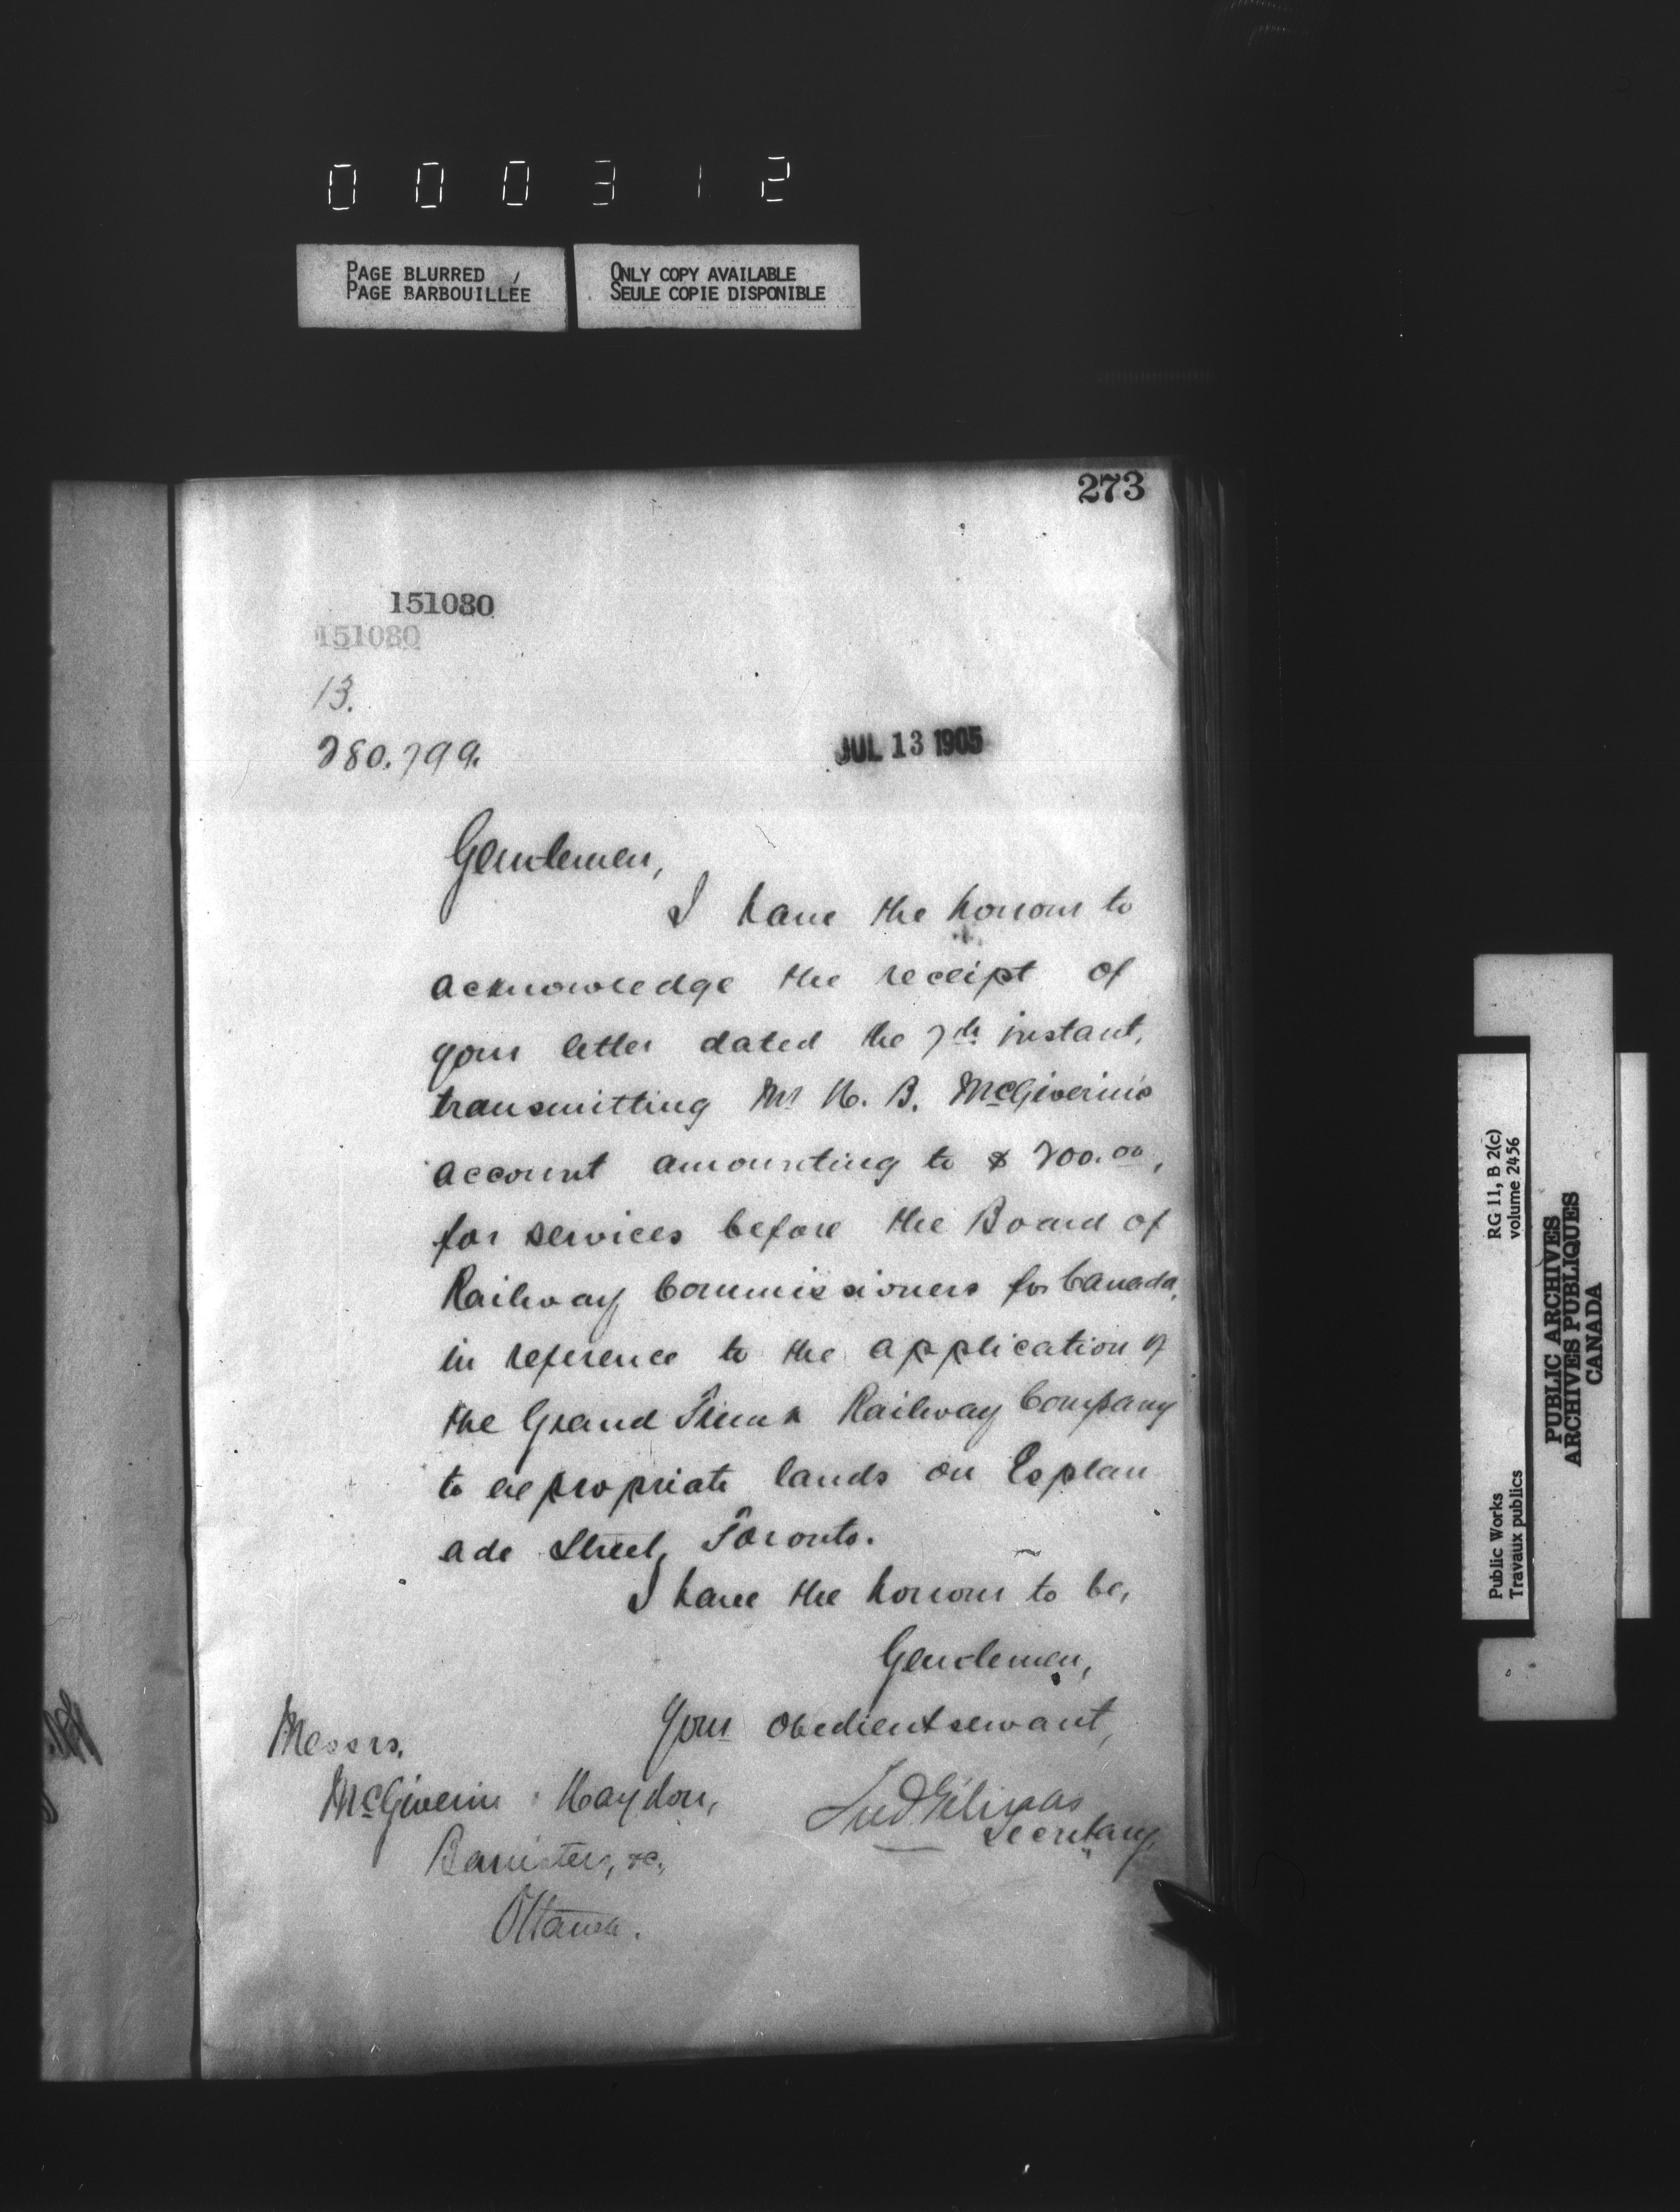 000312
PAGE BLURRED
PAGE BARBOUILLÉE
ONLY COPY AVAILABLE
SEULE COPIE DISPONIBLE
273
151080
151080
13.
280.799.
JUL 13 1905
Gentlemen,
I have the honour to
acknowledge the receipt of
your letter dated the 7th instant,
transmitting Mr H. B. McGiverin's
account amounting to $ 200.00,
for services before the Board of
Railway Commissioners for Canada,
in reference to the application of
the Grand Trunk Railway Company
to expropriate lands on Esplan
ade Street, Toronto.
I have the honour to be,
Gentlemen,
Your obedient servant,
Fred Gélinas
Secretary,
Messrs.
McGiverin Haydon,
Barristers, &c.,
Ottawa.
Public Works
Travaux publics
RG 11, B 2(c)
volume 2456
PUBLIC ARCHIVES
ARCHIVES PUBLIQUES
CANADA